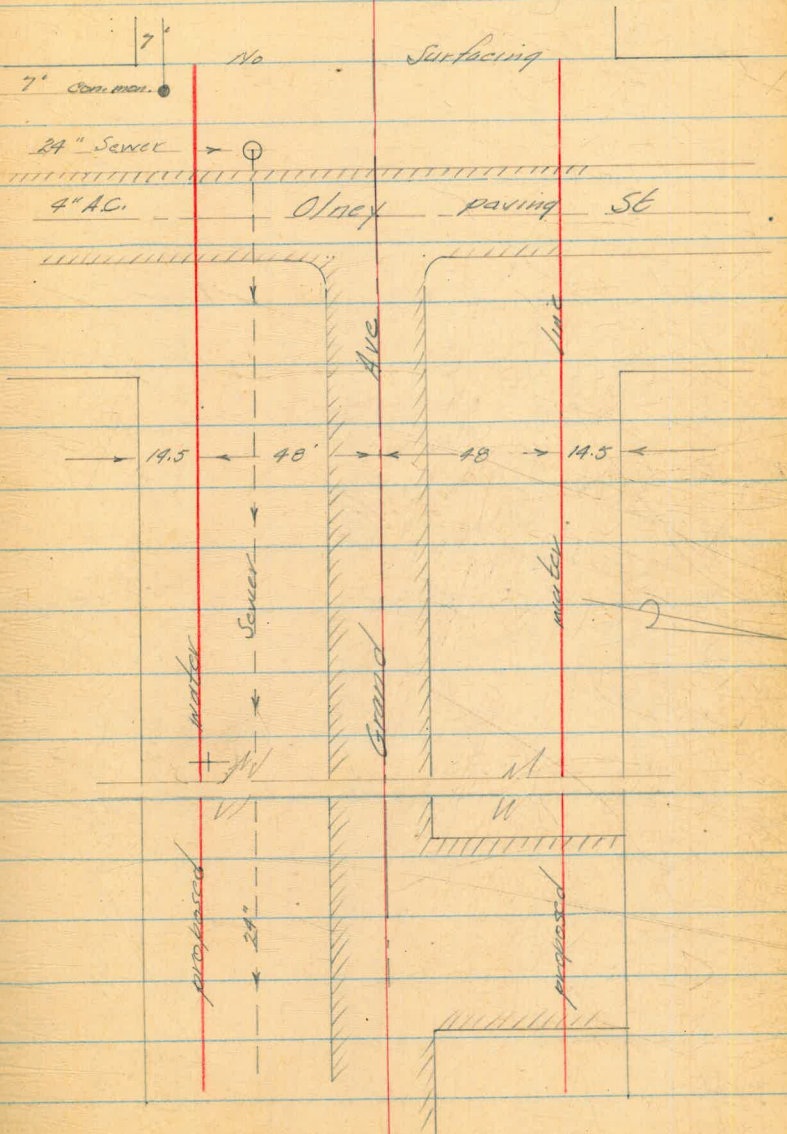 7'
No Surfacing
7' con. mon.
24" Sewer
4" A.C. Olney paving St
Ave
line
14.5 48' 48 14.5
Sewer
water
water
Grand
proposed
24"
proposed